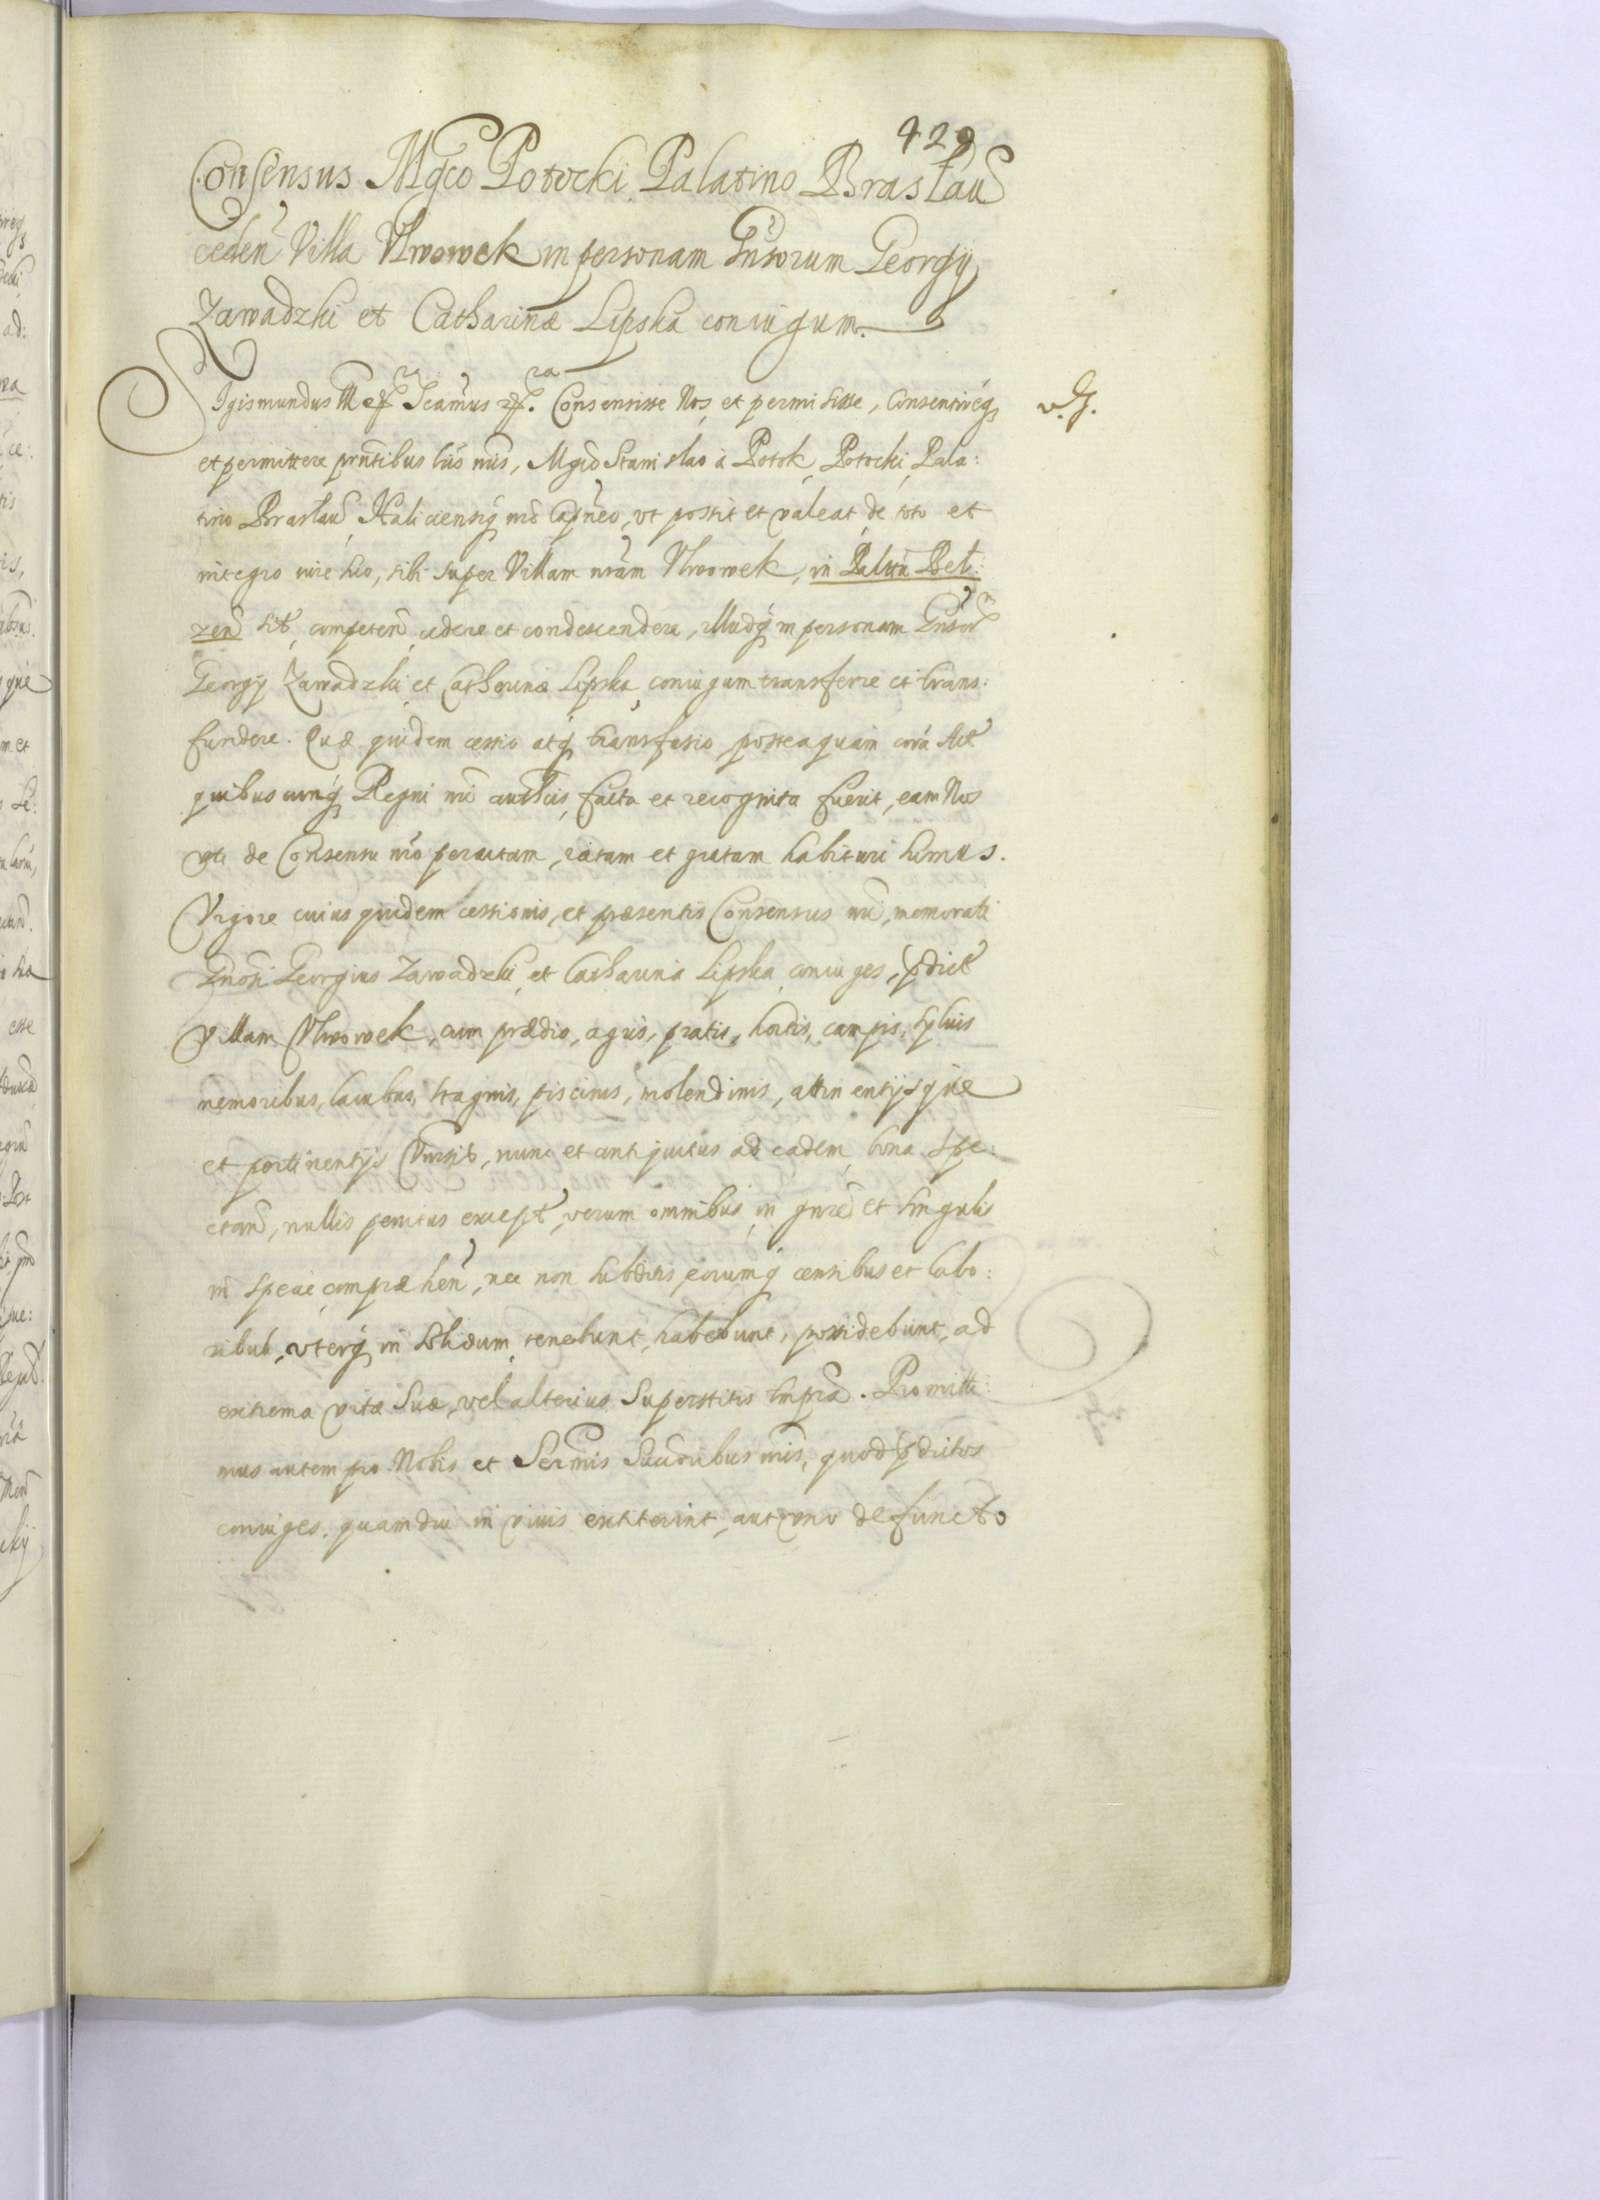 429
Consensus Mgco Potocki Palatino Braslau
ceden Villa Vhrowek in personam Gnsorum Georgij
Zawadzki et Catharinæ Lipska coniugum.
Sigismundus III etc. Significamus etc. Consensisse Nos et permisisse, Consentireq
et permittere pntibus lris nris, Mgco Stanislao à Potok Potocki Pala:
tino Braslau Haliciensiq nro Capneo, vt possit et valeat de toto et
integro iure suo, sibi super Villam nram Vhrowek, in Paltu Bel:
zen sit, competen cedere et condescendere, illudq in personam Gnsor
Georgij Zawadzki et Catharinæ Lipska coniugum transferre et trans:
fundere. Quæ quidem cessio atq transfusio posteaquam corã Act
quibuscunq Regni nri authcis, facta et recognita fuerit, eam Nos
vti de Consensu nro peractam, ratam et gratam habituri sumus.
Vigore cuius quidem cessionis, et præsentis Consensus nri, memorati
Gnosi Georgius Zawadzki et Catharina Lipska coniuges, pdict
Villam Vhrowek, cum prædio, agris, pratis, hortis, campis, syluis
nemoribus, lacubus, stagnis, piscinis, molendinis, attinentijsque
et pertinentijs vnrsis, nunc et antiquitus ad eadem bona spe:
ctan, nullis penitus except, verum omnibus in gnre et singulis
in specie compræhen, nec non subditis, eorumq censibus et labo:
ribus, vterq in solidum tenebunt, habebunt, possidebunt, ad
extrema vitæ suæ, vel alterius superstitis tmpra. Promitti:
mus autem pro Nobis et Sermis Succribus nris, quod pdictos
coniuges, quamdiu in viuis extiterint, aut vno defuncto